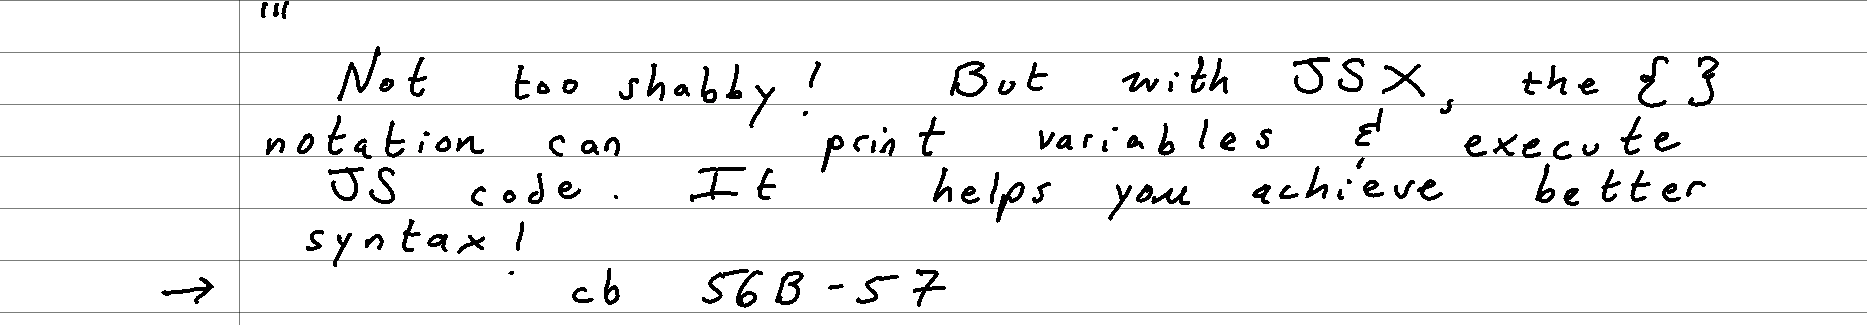 Not too shabby! But with JSX, the { }
notation can print variables & execute
JS code. It helps you achieve better
syntax!
→ cb 56B-57